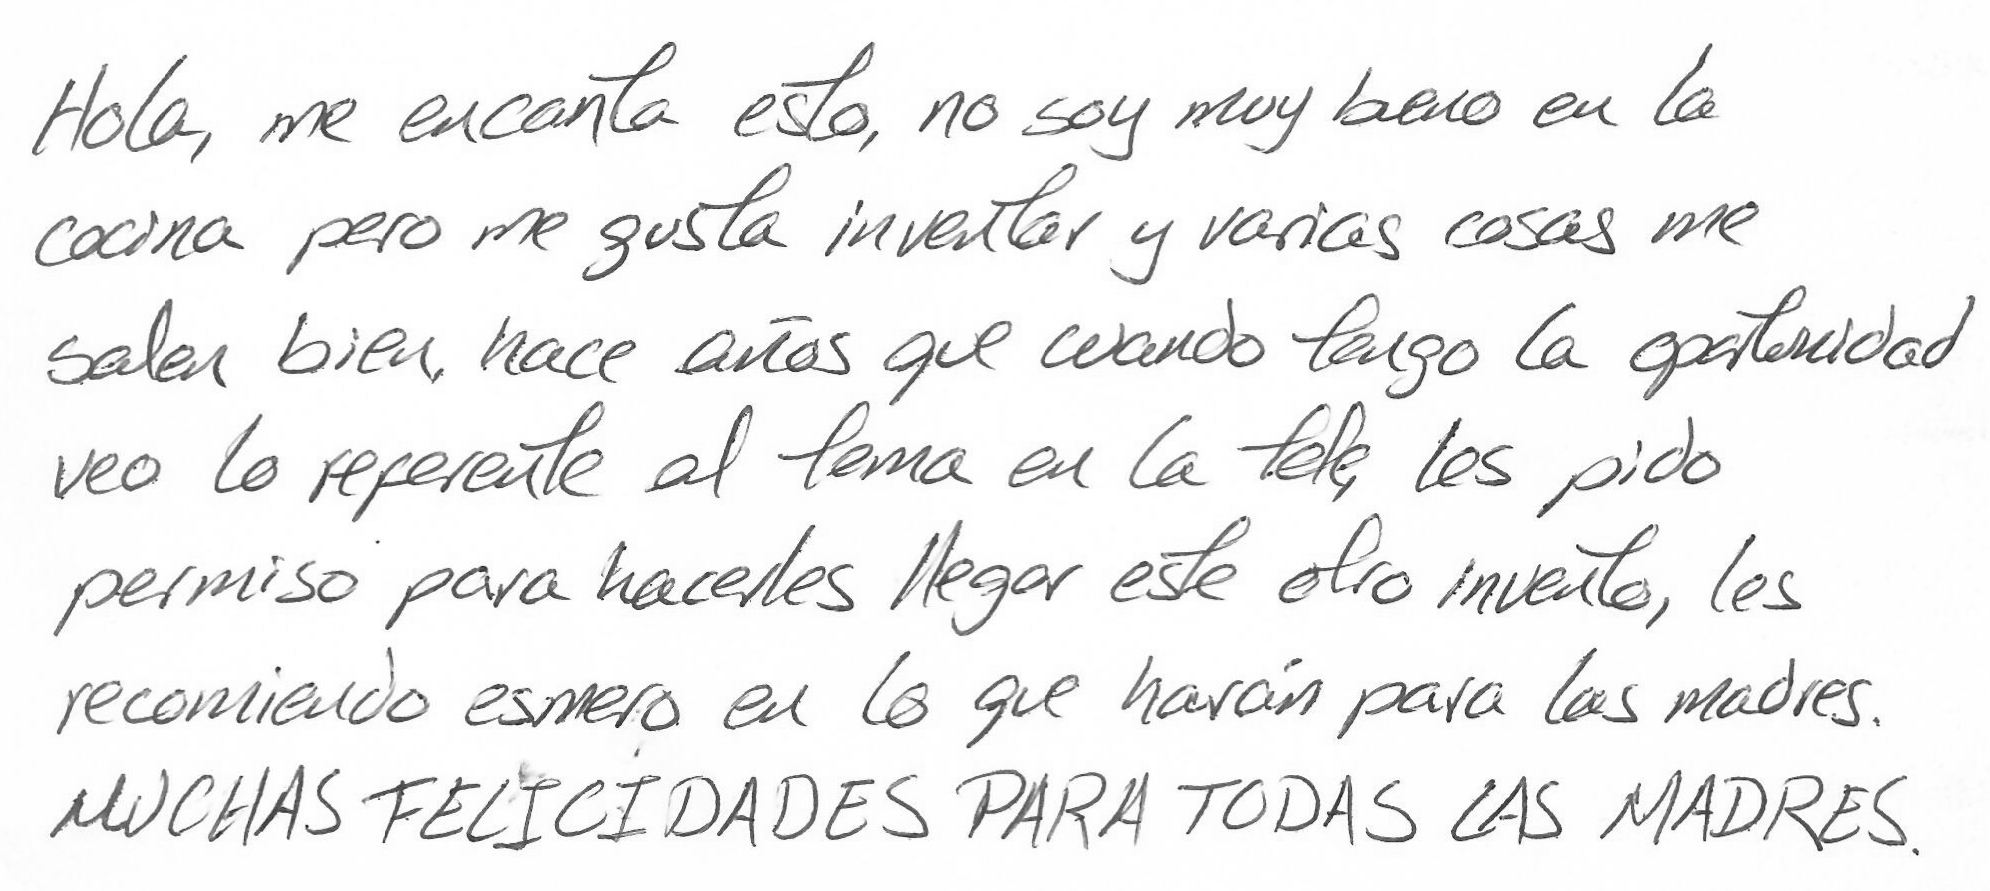 Hola, me encanta esto, no soy muy bueno en la
cocina pero me gusta inventar y varias cosas me
salen bien, hace años que cuando tengo la oportunidad
veo lo referente al tema en la tele, les pido
permiso para hacerles llegar este otro invento, les
recomiendo esmero en lo que harán para las madres.
MUCHAS FELICIDADES PARA TODAS LAS MADRES.